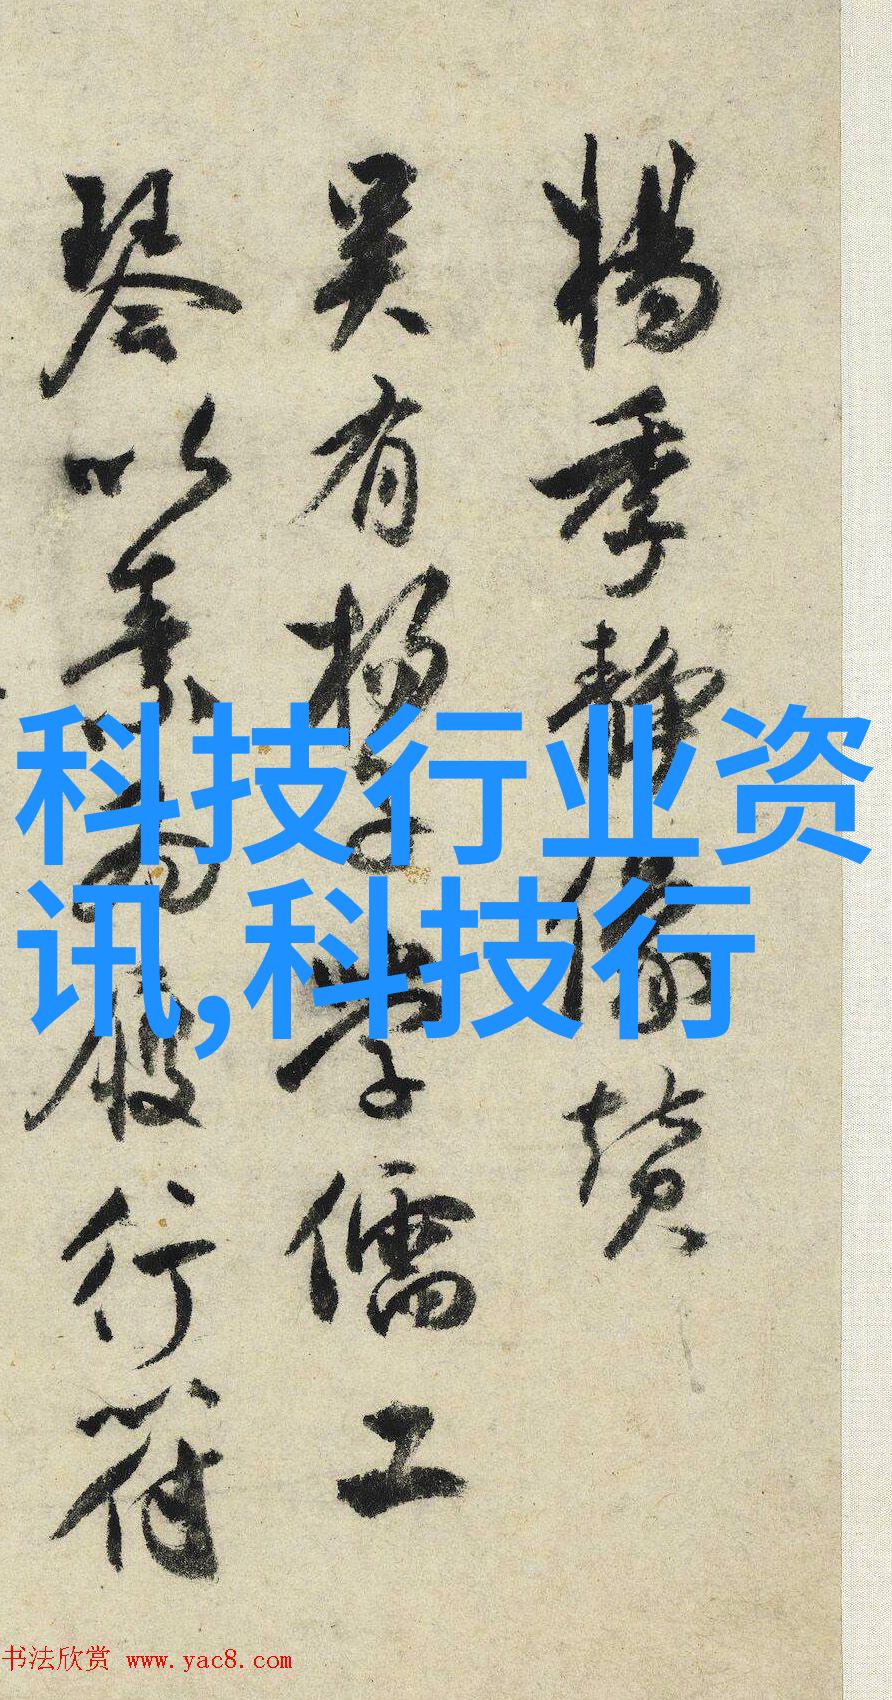 楊季静小像赞
吴有杨子学儒工
琴以素为履行符
科技行业资
讯,科技行
书法欣赏 www.yac8.com